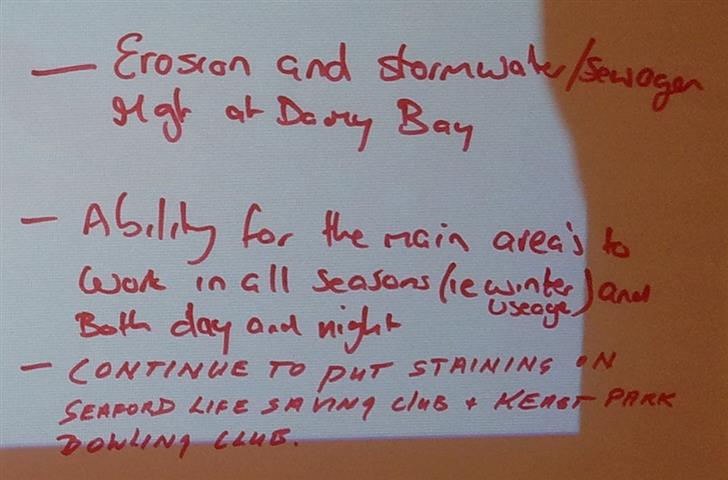 — Erosion and stormwater/sewagen
Mgt at Davey Bay
— Ability for the main area's to
work in all seasons (ie winter useage) and
Both day and night
— CONTINUE TO PUT STAINING ON
SEAFORD LIFE SAVING CLUB + KEAST PARK
BOWLING CLUB.